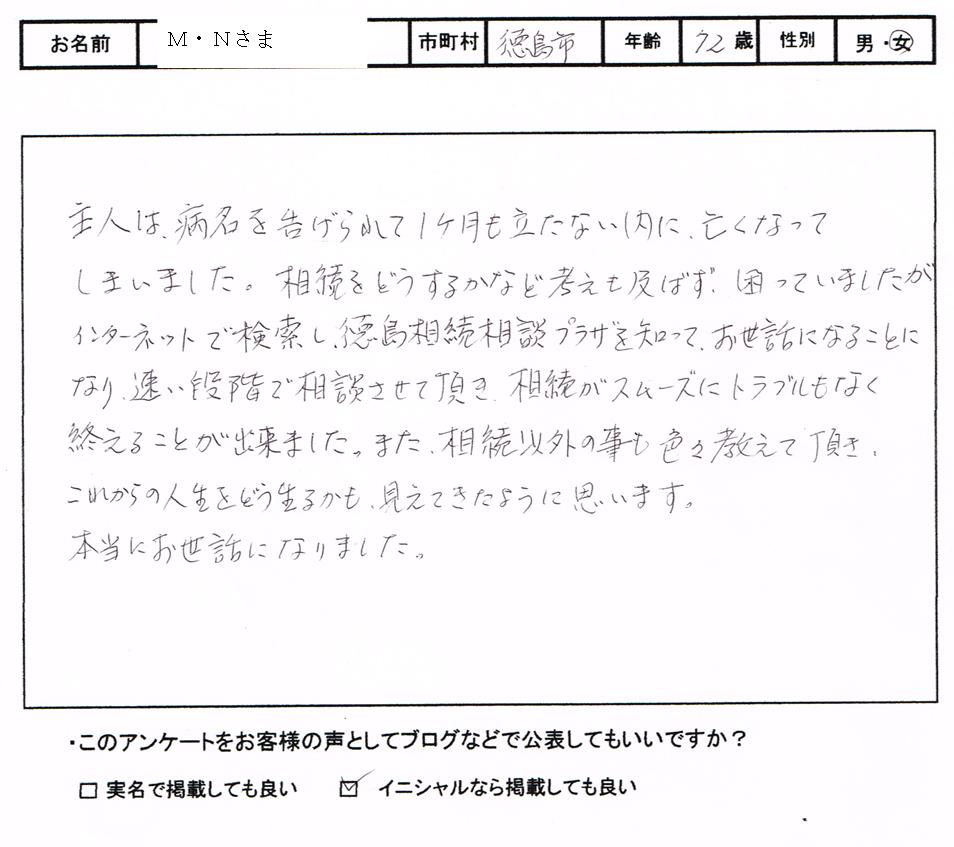 お名前 M・Nさま 市町村 徳島市 年齢 72歳 性別 男・女
主人は、病名を告げられて1ヶ月も立たない内に、亡くなって
しまいました。相続をどうするかなど考えも及ばず、困っていましたが
インターネットで検索し、徳島相続相談プラザを知って、お世話になることに
なり、速い段階で相談させて頂き、相続がスムーズにトラブルもなく
終えることが出来ました。また、相続以外の事も色々教えて頂き、
これからの人生をどう生るかも、見えてきたように思います。
本当にお世話になりました。
・このアンケートをお客様の声としてブログなどで公表してもいいですか？
□ 実名で掲載しても良い ☑ イニシャルなら掲載しても良い